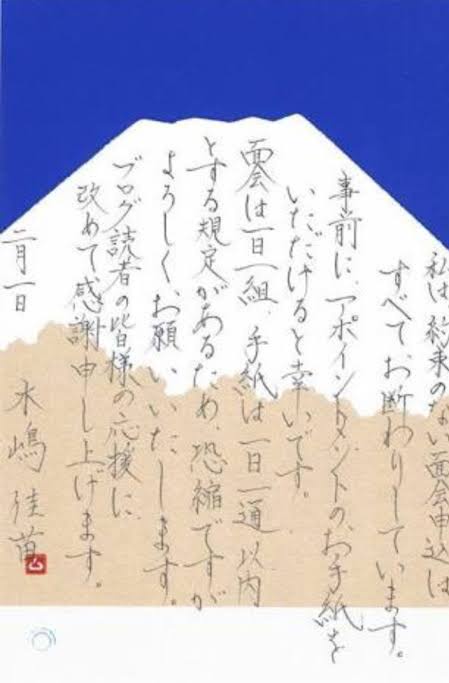 私は約束のない面会申込は
すべてお断わりしています。
事前に、アポイントメントのお手紙を
いただけると幸いです。
面会は一日一組、手紙は一日一通以内
とする規定があるため、恐縮ですが
よろしく、お願いいたします。
ブログ読者の皆様の応援に、
改めて感謝申し上げます。
二月一日
木嶋佳苗